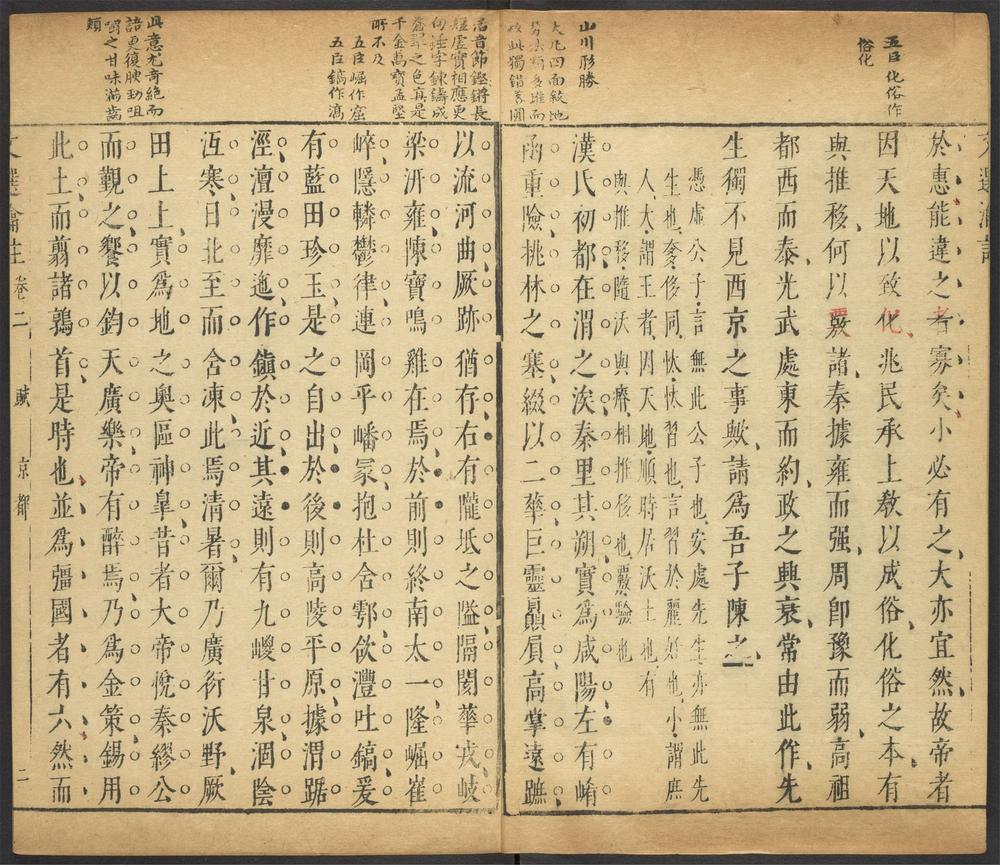 五臣化俗作
俗化
於惠能違之者寡矣小必有之大亦宜然故帝者
因天地以致化兆民承上教以成俗化俗之本有
與推移何以覈諸秦據雍而强周卽豫而弱高祖
都西而泰光武處東而約政之興衰常由此作先
生獨不見西京之事歟請爲吾子陳之
憑虛公子言無此公子也安處先生亦無此先
生也奓侈同忕忕習也言習於麗好也小謂庶
人大謂王者因天地順時居沃土也有
與推移隨沃與瘠相推移也覈驗也
山川形勝
大凡四面敘池
故此獨錯綜圓
漢氏初都在渭之涘秦里其朔實爲咸陽左有崤
函重險桃林之塞綴以二華巨靈贔屓高掌遠蹠
若音節鏗鏘長
短虛實相應更
句錘字鍊鑄成
蒼翠之色眞是
千金萬寶孟堅
所不及
五臣崛作窟
五臣鎬作滈
以流河曲厥跡猶存右有隴坻之隘隔閡華戎岐
梁汧雍陳寶鳴雞在焉於前則終南太一隆崛崔
崒隱轔鬱律連岡乎嶓冡抱杜含鄠欲灃吐鎬爰
有藍田珍玉是之自出於後則高陵平原據渭踞
涇澶漫靡迤作鎮於近其遠則有九嵕甘泉涸陰
沍寒日北至而含凍此焉清暑爾乃廣衍沃野厥
眞意尤奇絕而
語更復腴勁咀
嚼之甘味滿齒
頰
田上上實爲地之奧區神臯昔者大帝悅秦繆公
而覲之饗以鈞天廣樂帝有醉焉乃爲金策錫用
此土而翦諸鶉首是時也並爲彊國者有六然而
文選瀹註 卷二 賦 京都 二